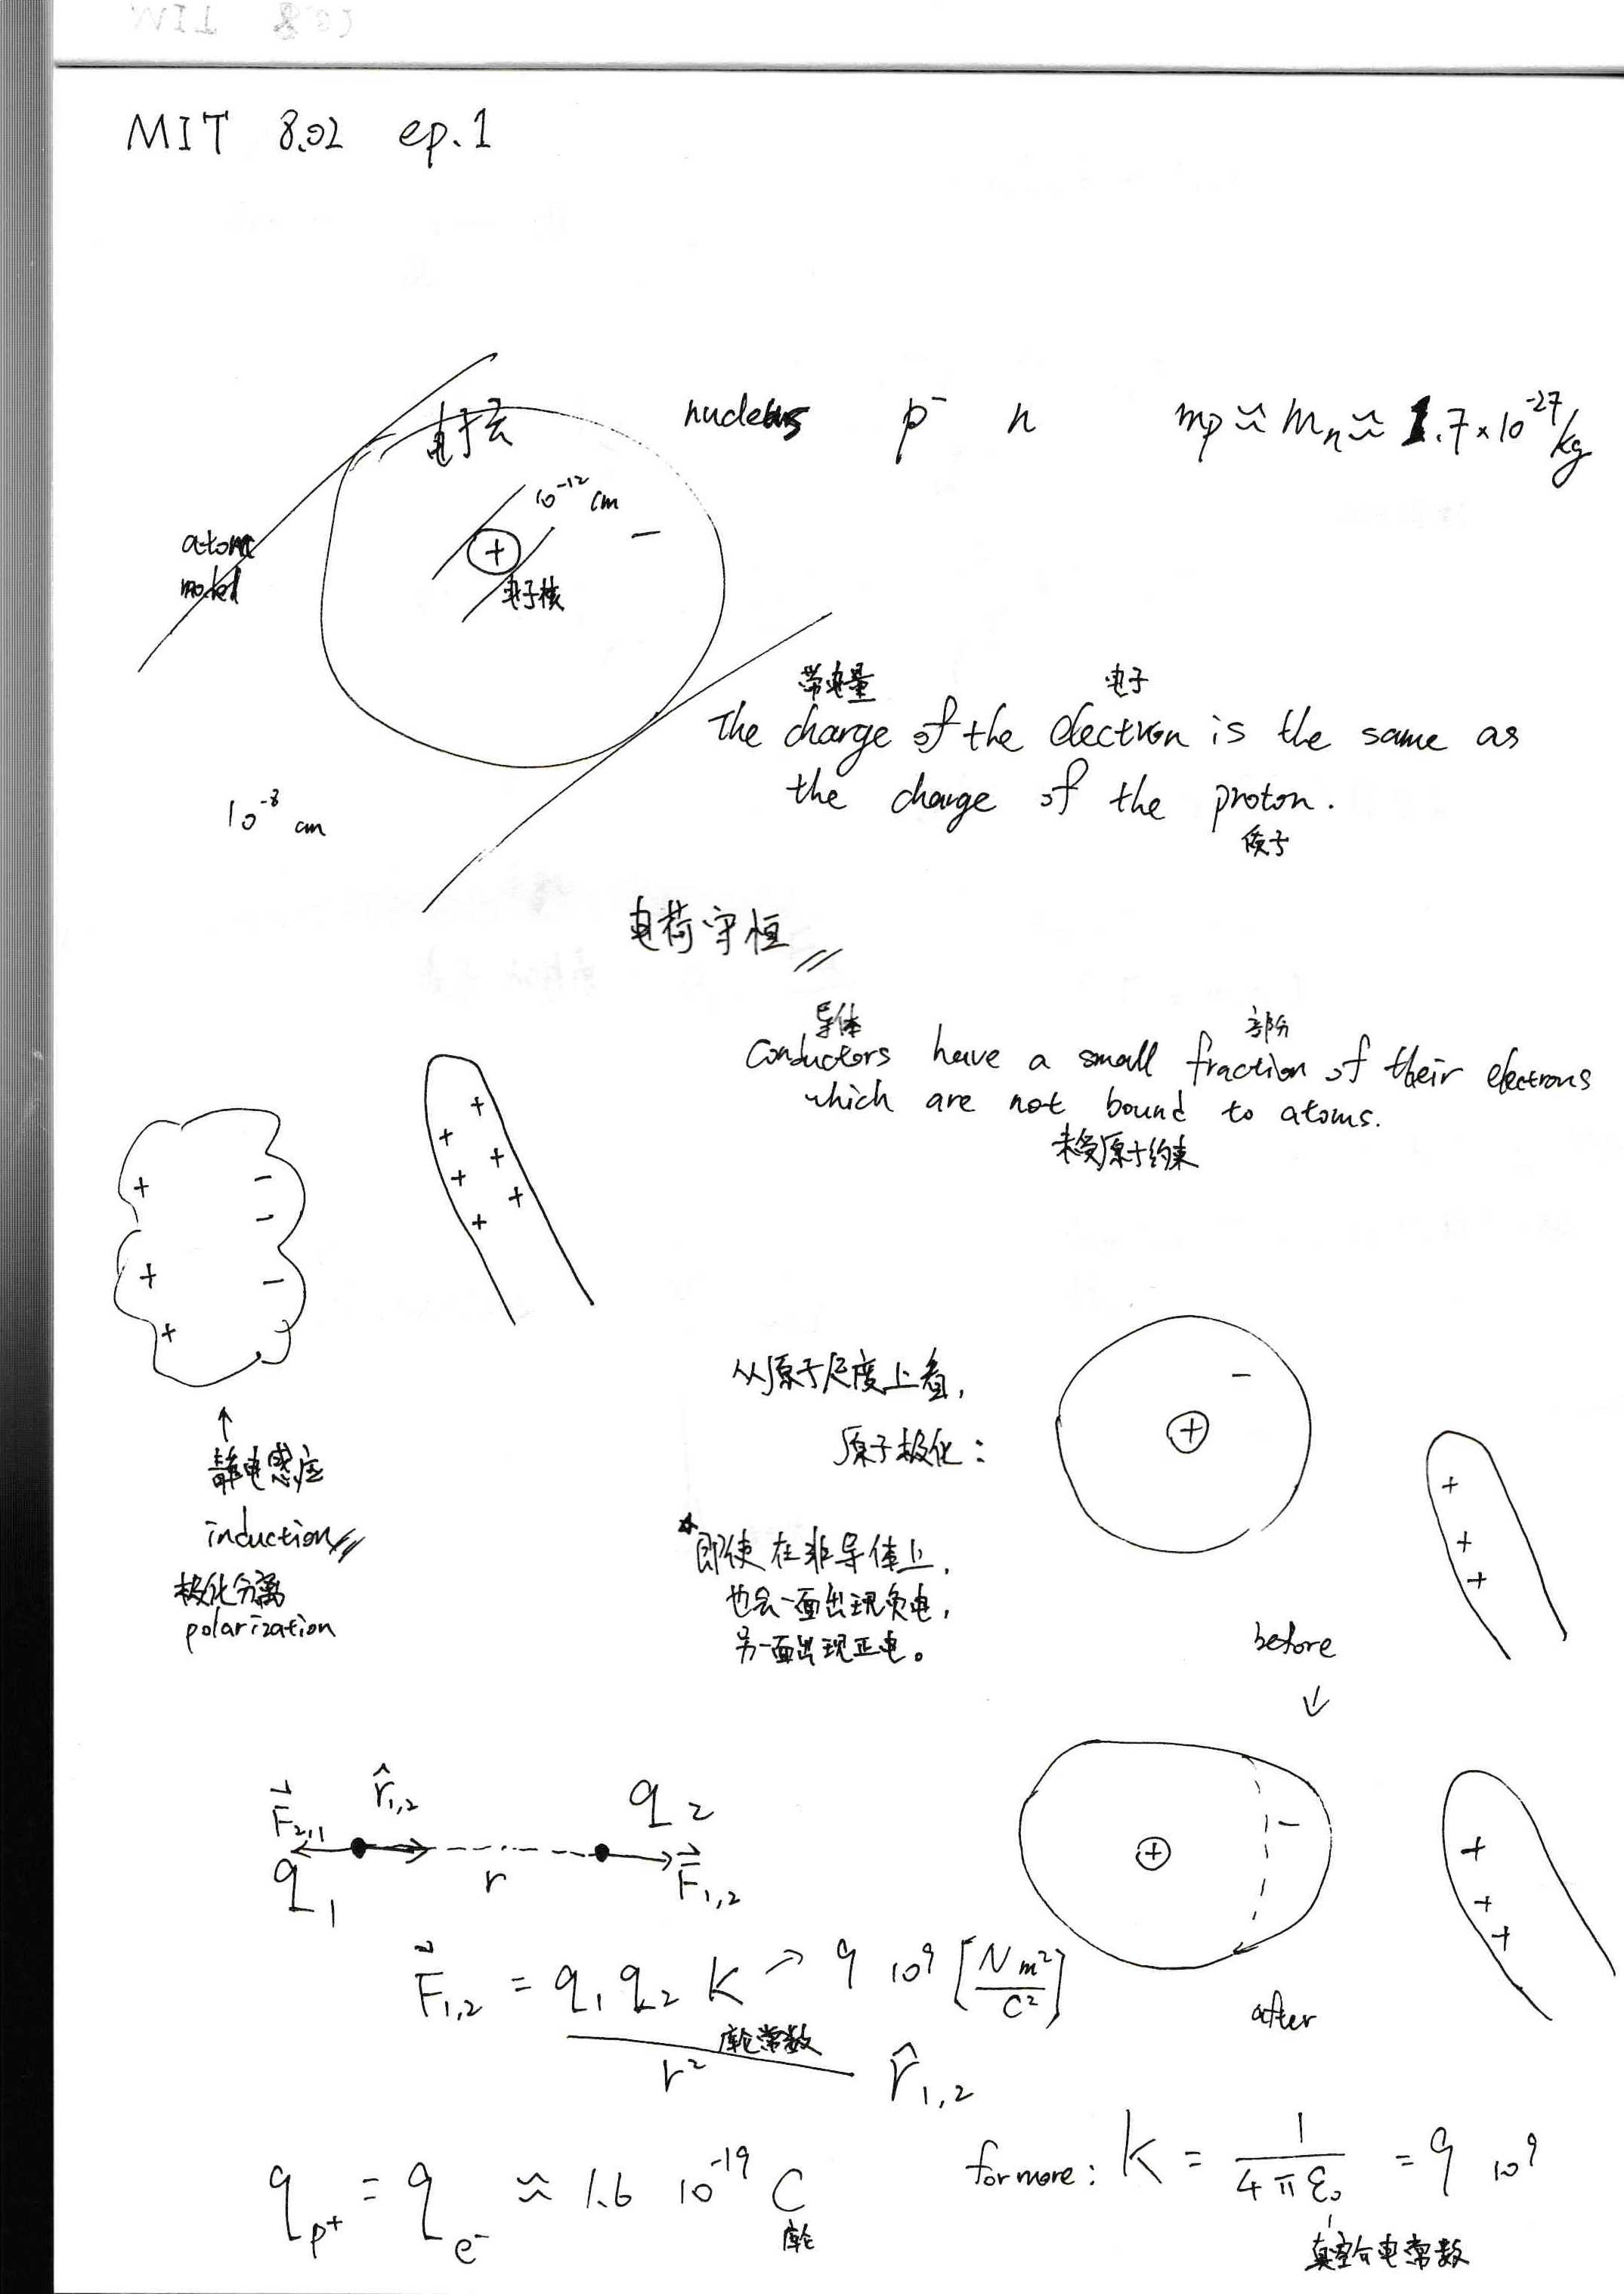 MIT 8.02 ep.1
电子云
nucleus p⁻ n mp ≈ mn ≈ 1.7×10⁻²⁷ kg
10⁻¹² cm
+
−
atom
model
电子核
10⁻⁸ cm
带电量 电子
The charge of the electron is the same as
the charge of the proton.
质子
电荷守恒
导体 部分
Conductors have a small fraction of their electrons
which are not bound to atoms.
未受原子约束
+ + + + + +
+ −
−
+ −
+
↑
静电感应
induction
极化分离
polarization
从原子尺度上看,
原子极化:
*即使在非导体上,
也会一面出现负电,
另一面出现正电。
−
+
+
+
+
before
↓
−
+
+
+
+
after
F⃗2,1 r̂1,2 q2
q1 r F⃗1,2
F⃗1,2 = q1 q2 K → 9 10⁹ [N m²/C²]
库伦常数
r² r̂1,2
qp⁺ = qe⁻ ≈ 1.6 10⁻¹⁹ C
库伦
for more: K = 1/4πε₀ = 9 10⁹
真空介电常数